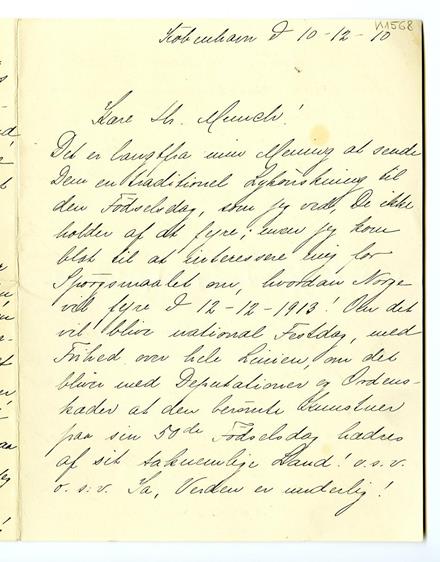 N1568
København d 10-12-10
Kære Hr. Munch!
Det er langtfra min Mening at sende
Dem en traditionel Lykønskning til
den Fødselsdag, som jeg ved, De ikke
holder af at fejre; men jeg kom
blot til at interessere mig for
Spørgsmaalet om, hvordan Norge
vil fejre d 12-12-1913! Om det
vil blive national Festdag, med
Frihed over hele Linien, om det
bliver med Deputationer og Ordens-
kæder at den berømte Kunstner
paa sin 50de Fødselsdag hædres
af sit taknemlige Land! o.s.v.
o.s.v. Ja, Verden er underlig!